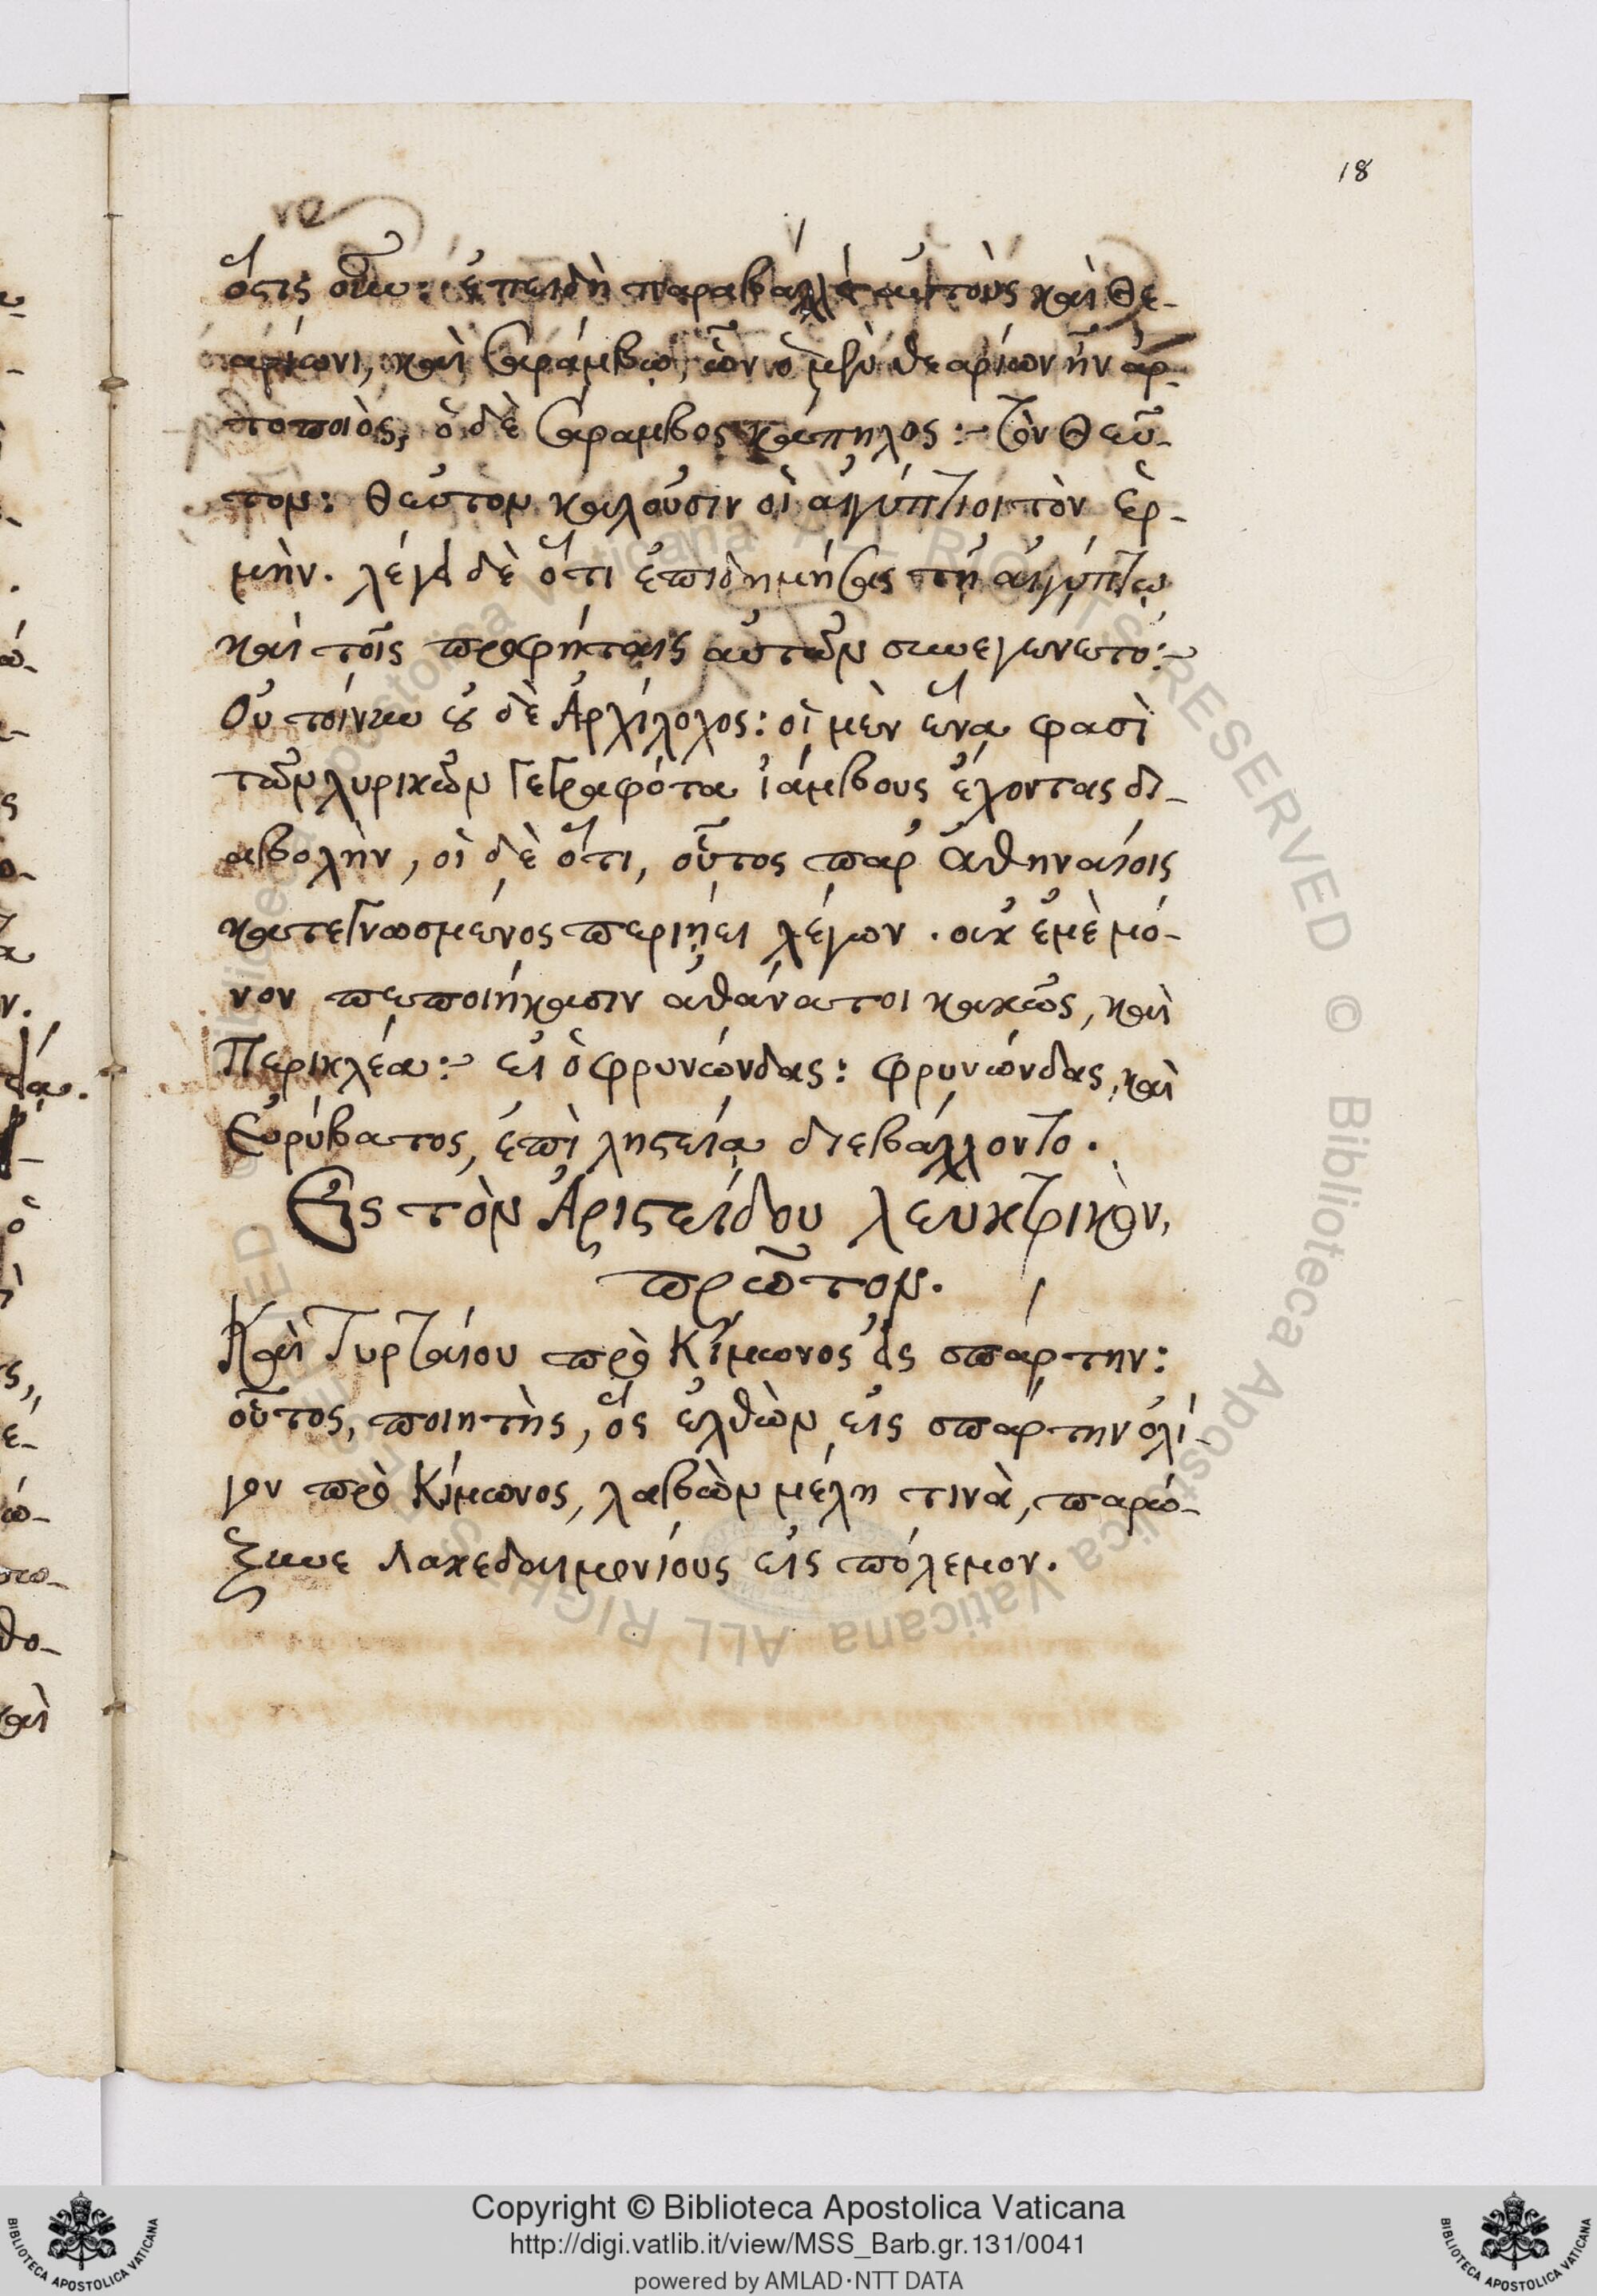 18
ὅστις οὖν: ἐπειδὴ παραβάλλει αὐτοὺς καὶ Θε-
αρίωνι, καὶ Σαράμβῳ, ὧν ὁ μὲν θεαρίων ἦν ἀρ-
τοποιὸς, ὁ δὲ Σάραμβος κάπηλος:~ τὸν Θεῦ-
τον: Θεῦτον καλοῦσιν οἱ αἰγύπτιοι τὸν ἑρ-
μὴν. λέγει δὲ ὅτι ἐπιδημήσας τῇ αἰγύπτῳ
καὶ τοῖς προφήταις αὐτῶν συνεγένετο:~
Οὐ τοίνυν οὐδὲ Ἀρχίλοχος: οἱ μὲν ἕνα φασὶ
τῶν λυρικῶν γεγραφότα ἰάμβους ἔχοντας δι-
αβολὴν, οἱ δὲ ὅτι, οὗτος παρ' Ἀθηναίοις
κατεγνωσμένος περιῄει λέγων. οὐκ ἐμὲ μό-
νον πεποιήκασιν ἀθάνατοι κακῶς, καὶ
Περικλέα:~ εἰ ὁ φρυνώνδας: φρυνώνδας, καὶ
Εὐρύβατος, ἐπὶ λῃστείᾳ διεβάλλοντο.
Εἰς τὸν Ἀριστείδου λευκτρικὸν,
πρῶτον.
Καὶ Τυρταίου πρὸ Κίμωνος εἰς σπάρτην:
οὗτος, ποιητὴς, ὃς ἐλθὼν εἰς σπάρτην ὀλί-
γον πρὸ Κίμωνος, λαβὼν μέλη τινὰ, παρώ-
ξυνε Λακεδαιμονίους εἰς πόλεμον.
Copyright © Biblioteca Apostolica Vaticana
http://digi.vatlib.it/view/MSS_Barb.gr.131/0041
powered by AMLAD·NTT DATA